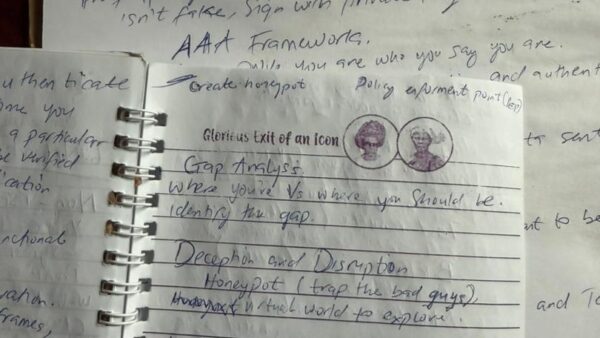 isn't fake, sign with
AAA Frameworks.
you are who you say you are.
and authent
uthenticate
me you
a particular
be verified
ication
nctional
vation.
frames,
Create honeypot
Policy enforment point (
Glorious Exit of an Icon
Gap Analysis
where you're Vs where you should be.
identify the gap.
Deception and Disruption
Honeypot (trap the bad guys),
virtual world to explore.
sent
to be
and To